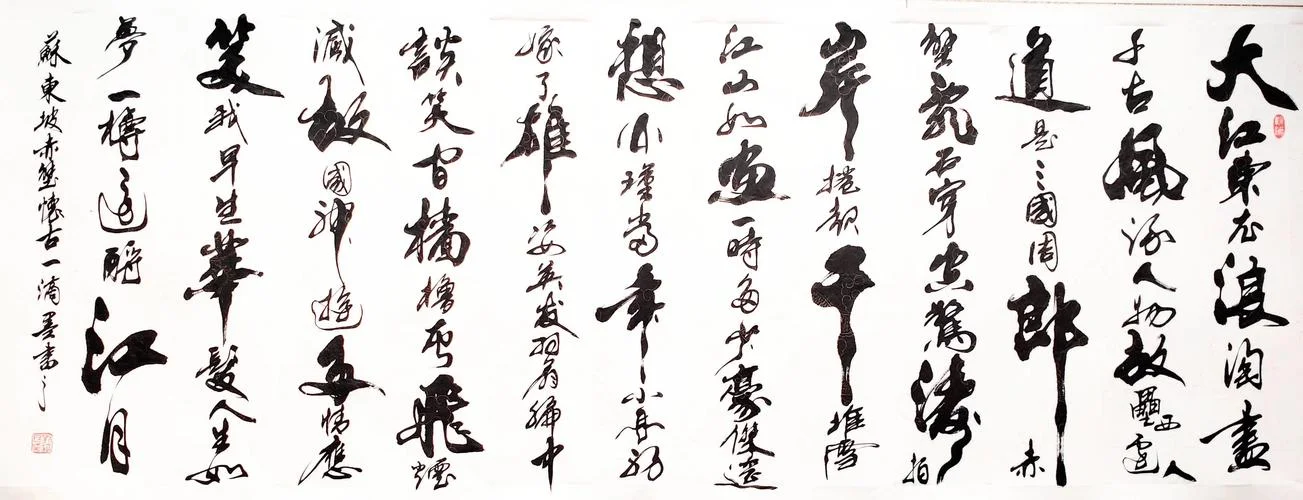 大江東去浪淘盡
千古風流人物故壘西邊人
道是三國周郎赤
壁亂石穿空驚濤拍
岸捲起千堆雪
江山如畫一時多少豪傑遙
想公瑾當年小喬初
嫁了雄姿英发羽扇綸巾
談笑間檣櫓灰飛煙
滅故國神遊多情應
笑我早生華髮人生如
夢一樽還酹江月
蘇東坡赤壁懷古一滴墨書之